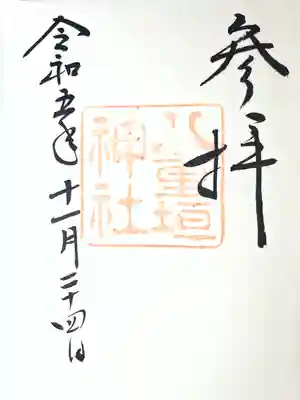 参拝
八重垣
神社
令和五年十一月二十四日